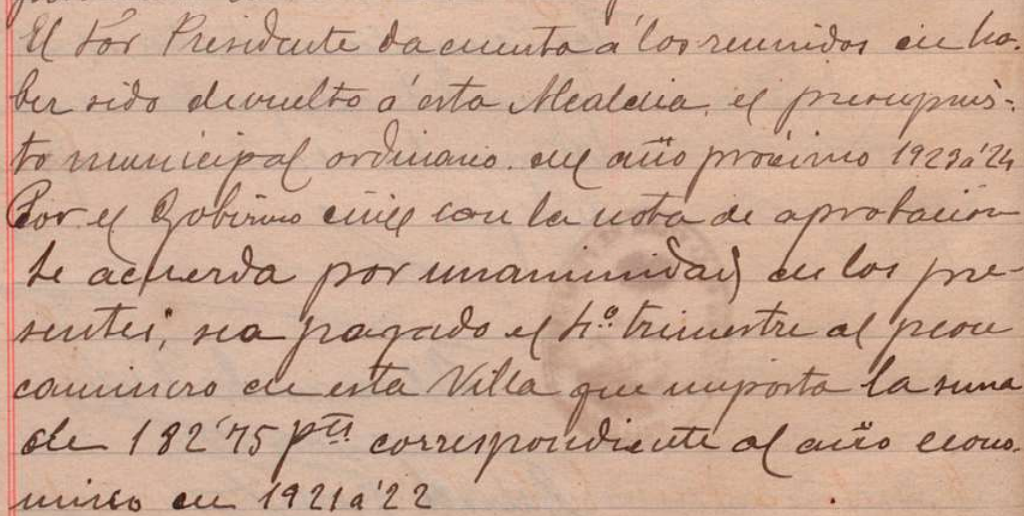 El Sor Presidente da cuenta a los reunidos de ha-
ber sido devuelto á esta Alcaldia, el presupues-
to municipal ordinario del año próximo 1923 a 24
Por el Gobierno civil con la nota de aprobación
Se acuerda por unanimidad de los pre-
sentes, sea pagado el 4º trimestre al peon
caminero de esta Villa que importa la suma
de 182'75 pts correspondiente al año econo-
mico de 1921 a 22